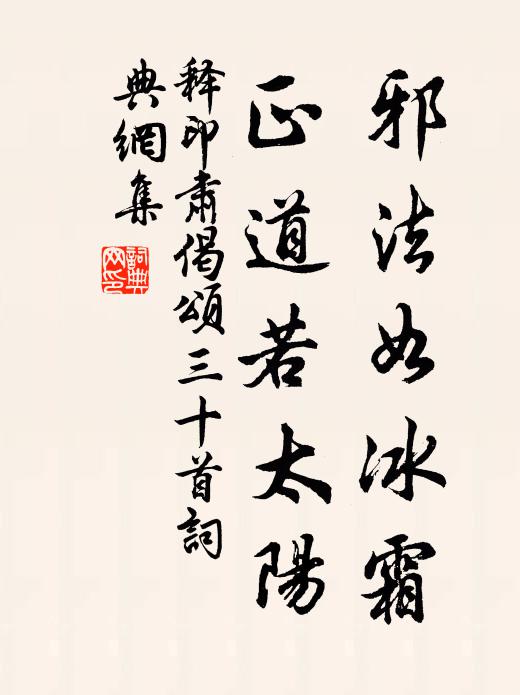 邪法如冰霜
正道若太阳
释印肃偈颂三十首词
典網集
詞典网印